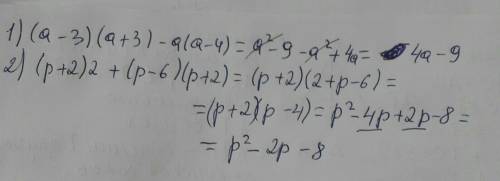 1) (a-3)(a+3)-a(a-4)=a²-9-a²+4a= 4a-9
2) (p+2)2+(p-6)(p+2)=(p+2)(2+p-6)=
=(p+2)(p-4)=p²-4p+2p-8=
=p²-2p-8